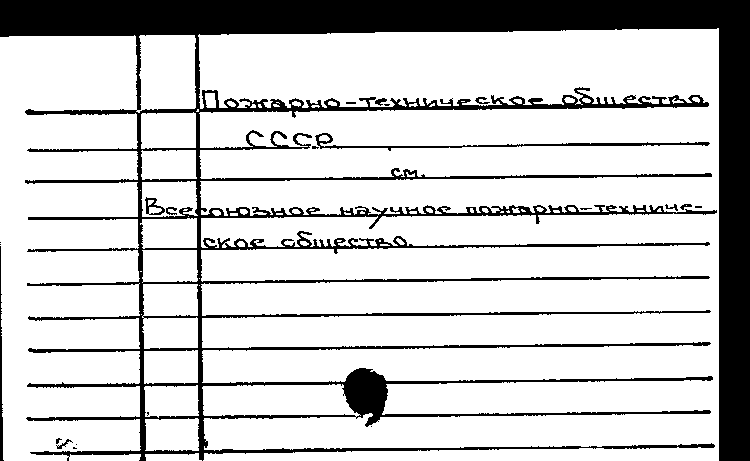 Пожарно-техническое общество
СССР
см.
Всесоюзное научное пожарно-техниче-
ское общество.